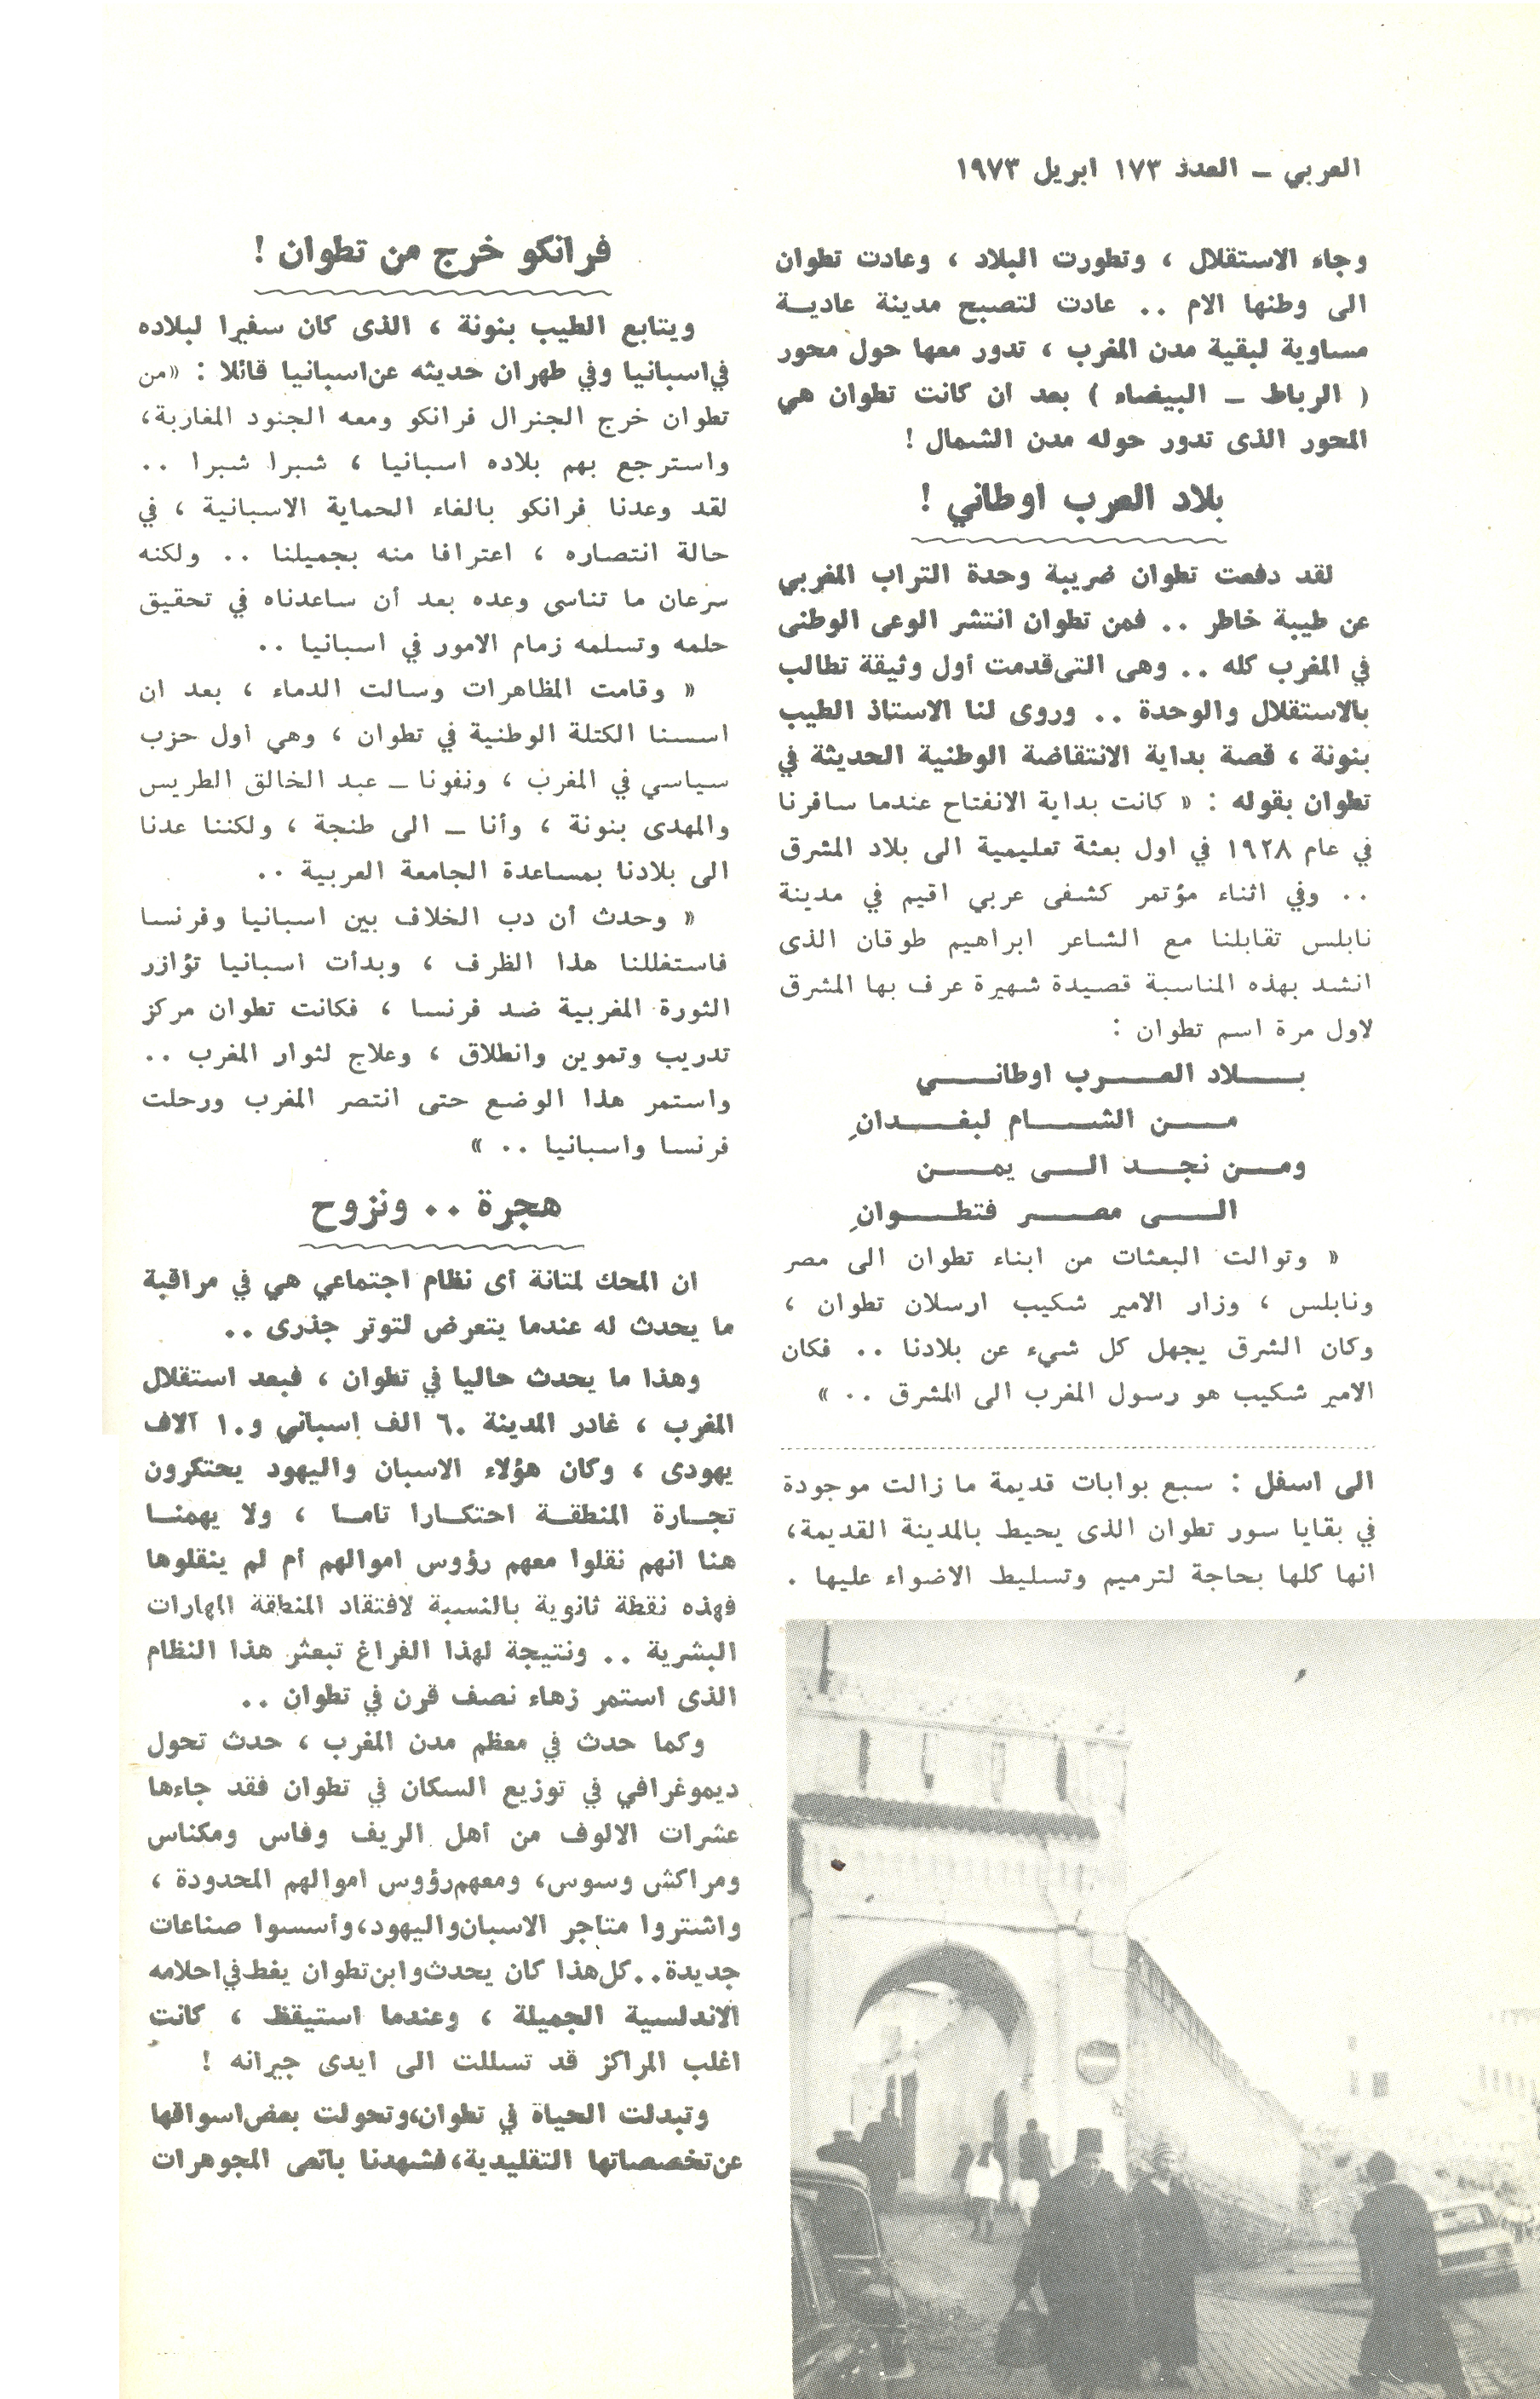 العربي – العدد ١٧٣ ابريل ١٩٧٣
وجاء الاستقلال ، وتطورت البلاد ، وعادت تطوان
الى وطنها الام .. عادت لتصبح مدينة عاديـة
مساوية لبقية مدن المغرب ، تدور معها حول محور
( الرباط – البيضاء ) بعد ان كانت تطوان هي
المحور الذى تدور حوله مدن الشمال !
بلاد العرب اوطاني !
لقد دفعت تطوان ضريبة وحدة التراب المغربي
عن طيبة خاطر .. فمن تطوان انتشر الوعى الوطنى
في المغرب كله .. وهى التى قدمت أول وثيقة تطالب
بالاستقلال والوحدة .. وروى لنا الاستاذ الطيب
بنونة ، قصة بداية الانتفاضة الوطنية الحديثة في
تطوان بقوله : « كانت بداية الانفتاح عندما سافرنا
في عام ١٩٢٨ في اول بعثة تعليمية الى بلاد المشرق
.. وفي اثناء مؤتمر كشفى عربي اقيم في مدينة
نابلس تقابلنا مع الشاعر ابراهيم طوقان الذى
انشد بهذه المناسبة قصيدة شهيرة عرف بها المشرق
لاول مرة اسم تطوان :
بـــلاد العـــرب اوطانـــي
مـــن الشـــام لبغـــدانِ
ومـــن نجـــد الـــى يمـــن
الـــى مصـــر فتطـــوانِ
« وتوالت البعثات من ابناء تطوان الى مصر
ونابلس ، وزار الامير شكيب ارسلان تطوان ،
وكان الشرق يجهل كل شيء عن بلادنا .. فكان
الامير شكيب هو رسول المغرب الى المشرق .. »
الى اسفل : سبع بوابات قديمة ما زالت موجودة
في بقايا سور تطوان الذى يحيط بالمدينة القديمة،
انها كلها بحاجة لترميم وتسليط الاضواء عليها .
فرانكو خرج من تطوان !
ويتابع الطيب بنونة ، الذى كان سفيرا لبلاده
في اسبانيا وفي طهران حديثه عن اسبانيا قائلا : «من
تطوان خرج الجنرال فرانكو ومعه الجنود المغاربة،
واسترجع بهم بلاده اسبانيا ، شبرا شبرا ..
لقد وعدنا فرانكو بالغاء الحماية الاسبانية ، في
حالة انتصاره ، اعترافا منه بجميلنا .. ولكنه
سرعان ما تناسى وعده بعد أن ساعدناه في تحقيق
حلمه وتسلمه زمام الامور في اسبانيا ..
« وقامت المظاهرات وسالت الدماء ، بعد ان
اسسنا الكتلة الوطنية في تطوان ، وهي أول حزب
سياسي في المغرب ، ونفونا – عبد الخالق الطريس
والمهدى بنونة ، وأنا – الى طنجة ، ولكننا عدنا
الى بلادنا بمساعدة الجامعة العربية ..
« وحدث أن دب الخلاف بين اسبانيا وفرنسا
فاستغللنا هذا الظرف ، وبدأت اسبانيا تؤازر
الثورة المغربية ضد فرنسا ، فكانت تطوان مركز
تدريب وتموين وانطلاق ، وعلاج لثوار المغرب ..
واستمر هذا الوضع حتى انتصر المغرب ورحلت
فرنسا واسبانيا .. »
هجرة .. ونزوح
ان المحك لمتانة أى نظام اجتماعي هي في مراقبة
ما يحدث له عندما يتعرض لتوتر جذرى ..
وهذا ما يحدث حاليا في تطوان ، فبعد استقلال
المغرب ، غادر المدينة ٦٠ الف اسباني و١٠ آلاف
يهودى ، وكان هؤلاء الاسبان واليهود يحتكرون
تجـارة المنطقـة احتكـارا تامـا ، ولا يهمنـا
هنا انهم نقلوا معهم رؤوس اموالهم أم لم ينقلوها
فهذه نقطة ثانوية بالنسبة لافتقاد المنطقة المهارات
البشرية .. ونتيجة لهذا الفراغ تبعثر هذا النظام
الذى استمر زهاء نصف قرن في تطوان ..
وكما حدث في معظم مدن المغرب ، حدث تحول
ديموغرافي في توزيع السكان في تطوان فقد جاءها
عشرات الالوف من أهل الريف وفاس ومكناس
ومراكش وسوس، ومعهم رؤوس اموالهم المحدودة ،
واشتروا متاجر الاسبان واليهود، وأسسوا صناعات
جديدة.. كل هذا كان يحدث وابن تطوان يغط في احلامه
الاندلسية الجميلة ، وعندما استيقظ ، كانت
اغلب المراكز قد تسللت الى ايدى جيرانه !
وتبدلت الحياة في تطوان، وتحولت بعض اسواقها
عن تخصصاتها التقليدية، فشهدنا بائعى المجوهرات